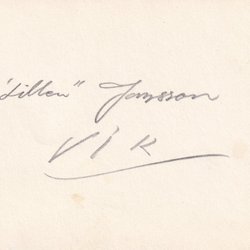 "Lillen" Jansson
VIK